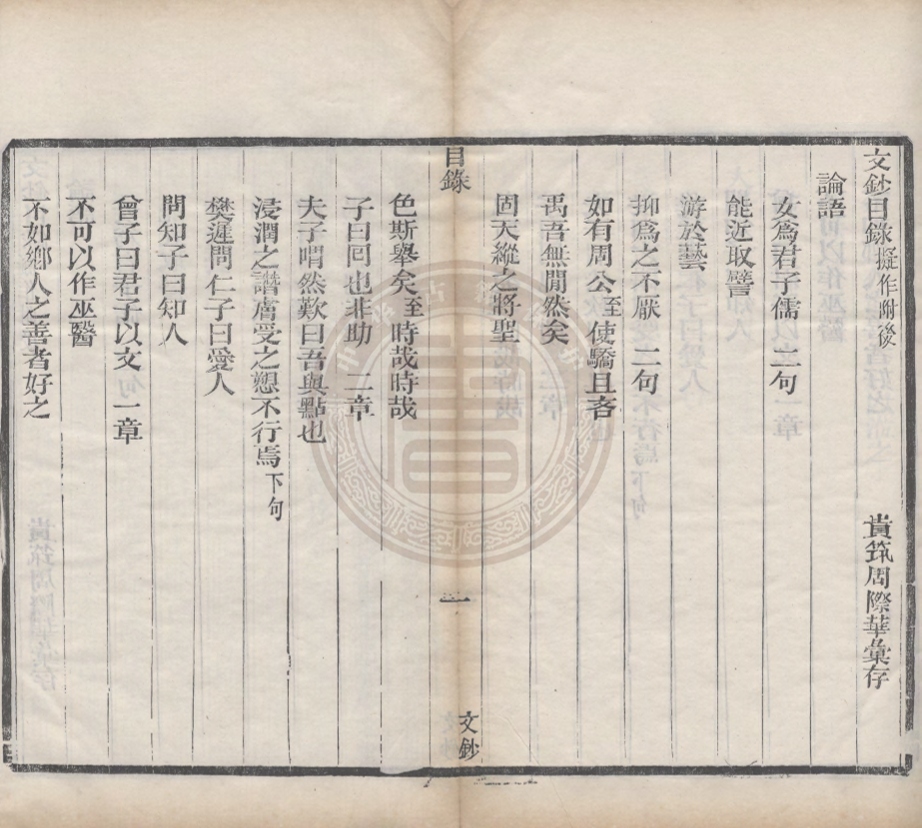 文鈔目錄擬作附後　貴筑周際華彙存
論語
女爲君子儒　二句
能近取譬
游於藝
抑爲之不厭　二句
如有周公至使驕且吝
禹吾無閒然矣
固天縱之將聖
目錄　一　文鈔
色斯舉矣至時哉時哉
子曰回也非助　二章
夫子喟然歎曰吾與點也
浸潤之譖膚受之愬不行焉下句
樊遲問仁子曰愛人
問知子曰知人
曾子曰君子以文　一章
不可以作巫醫
不如鄉人之善者好之